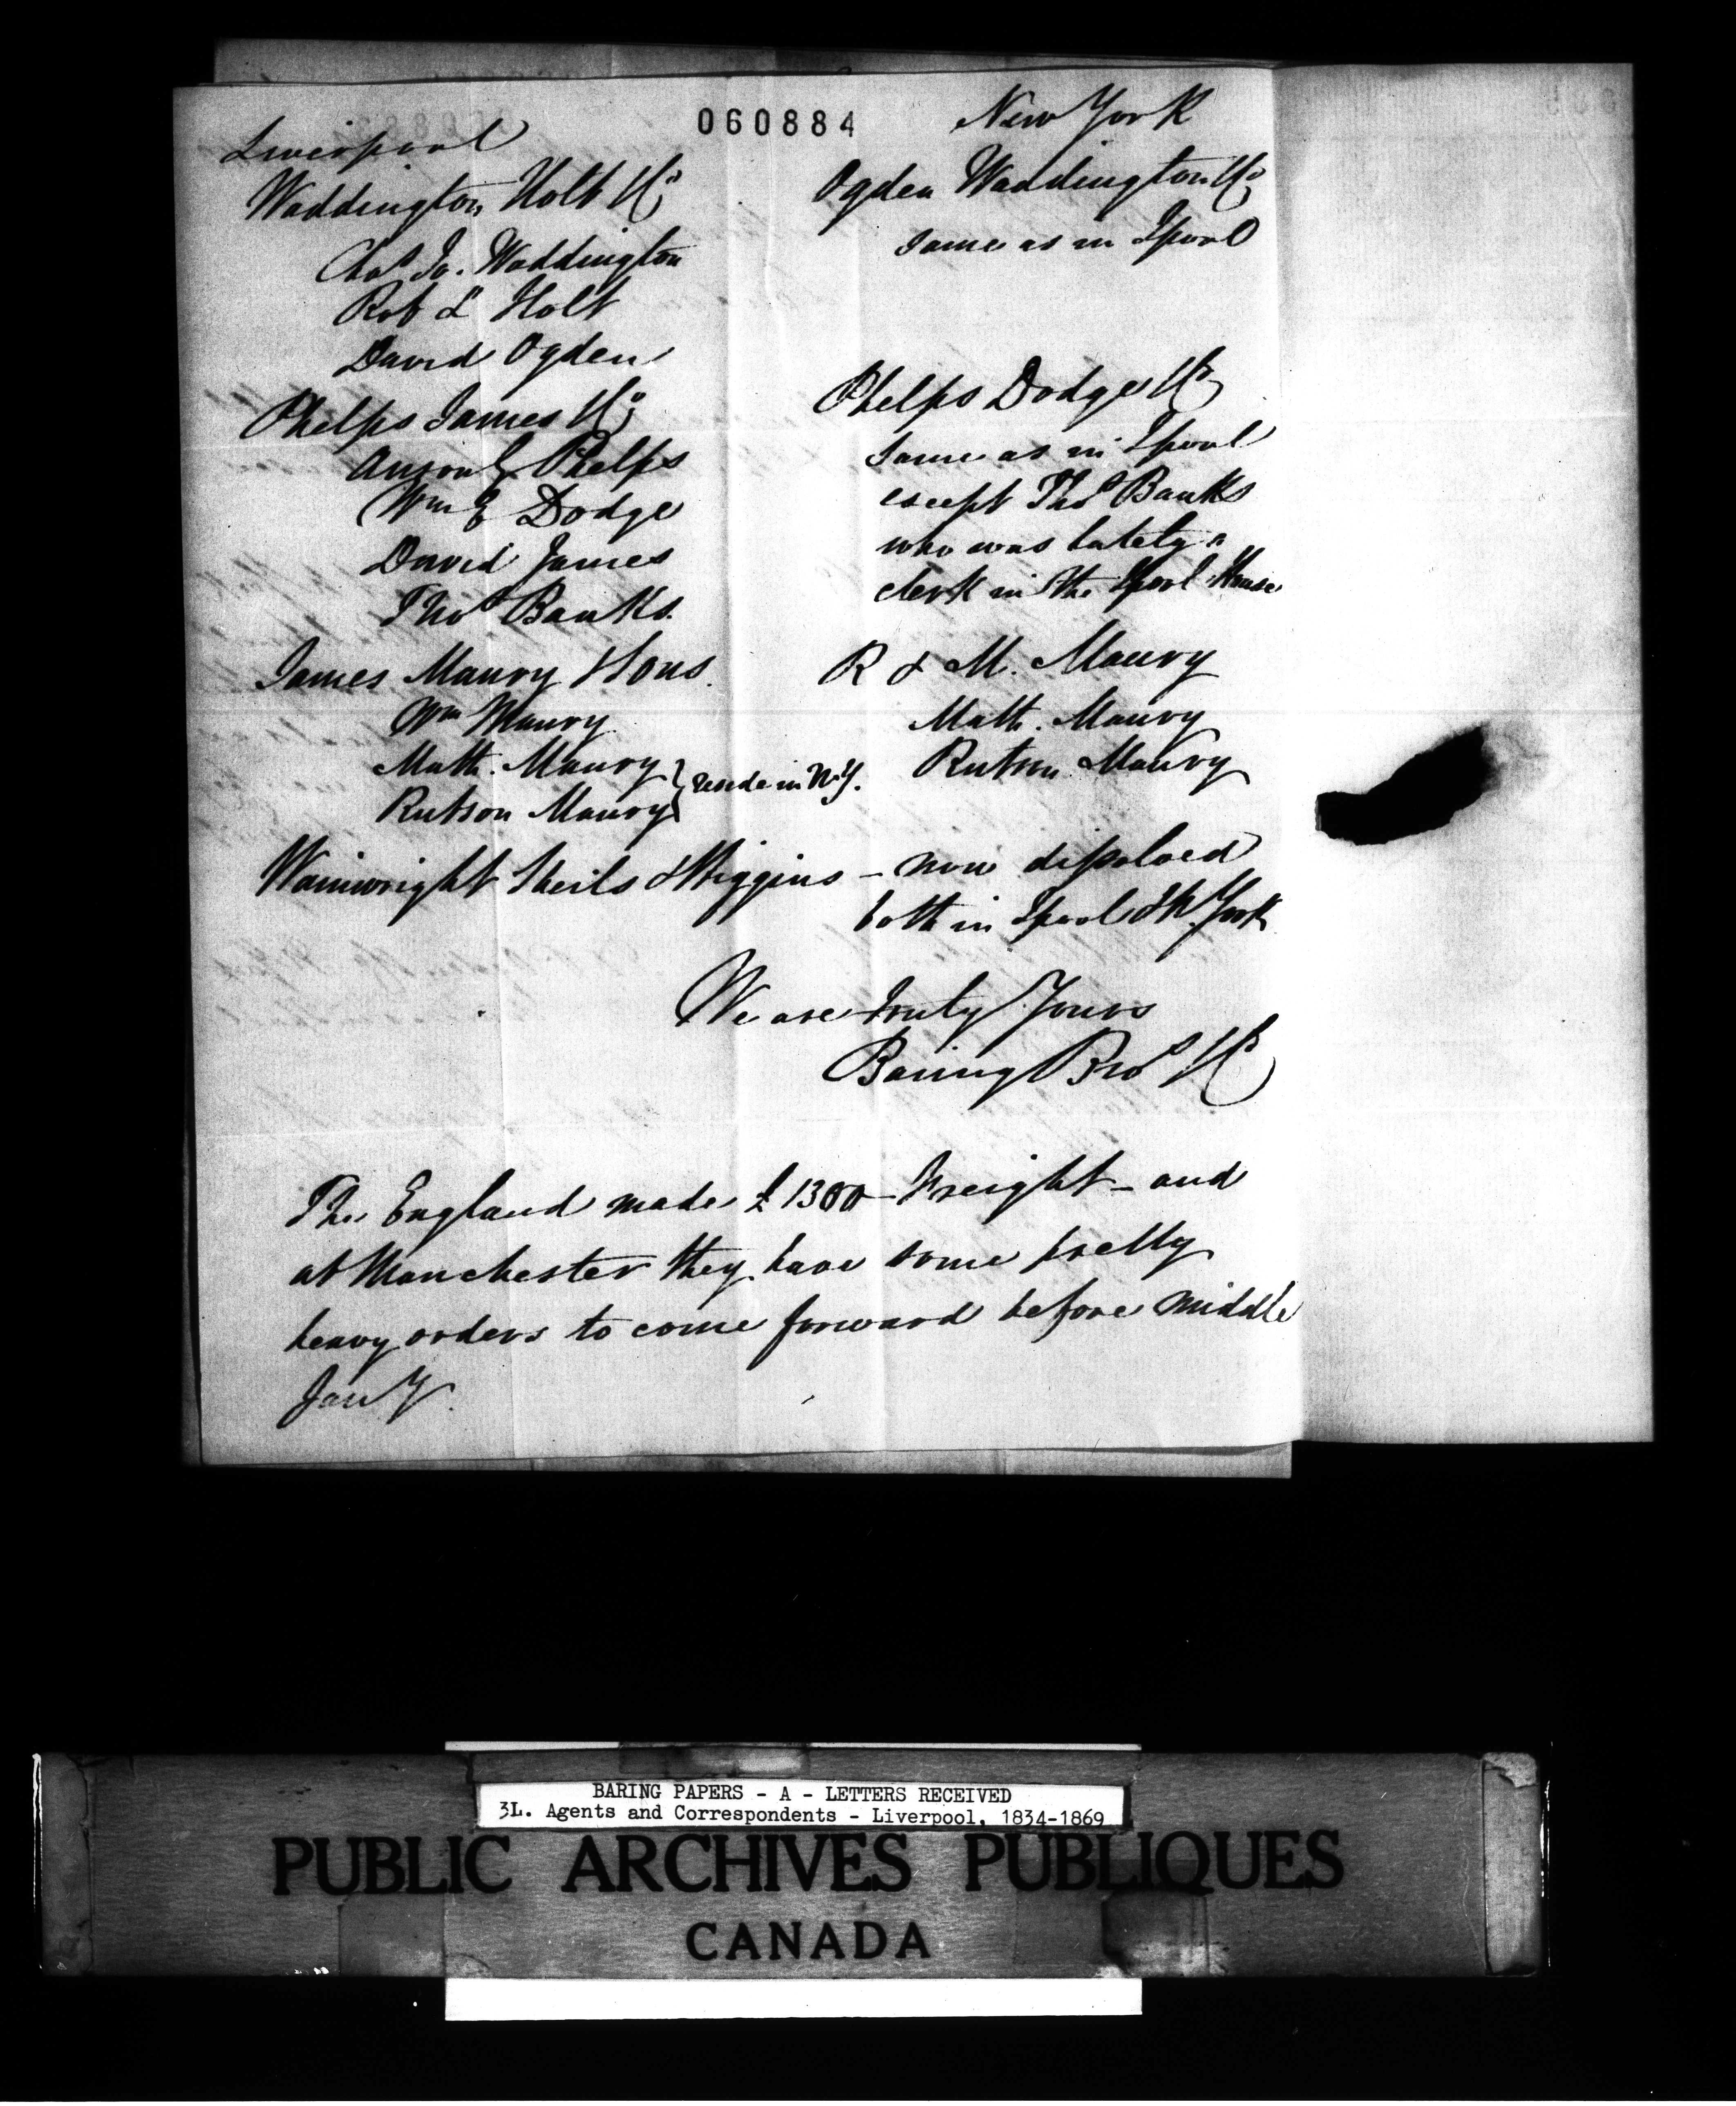 060884
Liverpool
Waddington Holt & Co
Chas Jo. Waddington
Rob L Holt
David Ogden
Phelps James & Co
Anson G Phelps
Wm E Dodge
David James
Thos Banks.
James Maury & Sons.
Wm Maury
Math. Maury
Rutson Maury } reside in N.Y.
New York
Ogden Waddington & Co
same as in Lpool
Phelps Dodge & Co
same as in Lpool
except Thos Banks
who was lately a
clerk in the Lpool House
R & M. Maury
Math. Maury
Rutson Maury
Wainwright Sheils & Wiggins - now dissolved
both in Lpool & N York
We are truly Yours
Baring Bros & Co
The England made £1300 freight - and
at Manchester they have some pretty
heavy orders to come forward before middle
Jany.
BARING PAPERS - A - LETTERS RECEIVED
3L. Agents and Correspondents - Liverpool, 1834-1869
PUBLIC ARCHIVES PUBLIQUES
CANADA